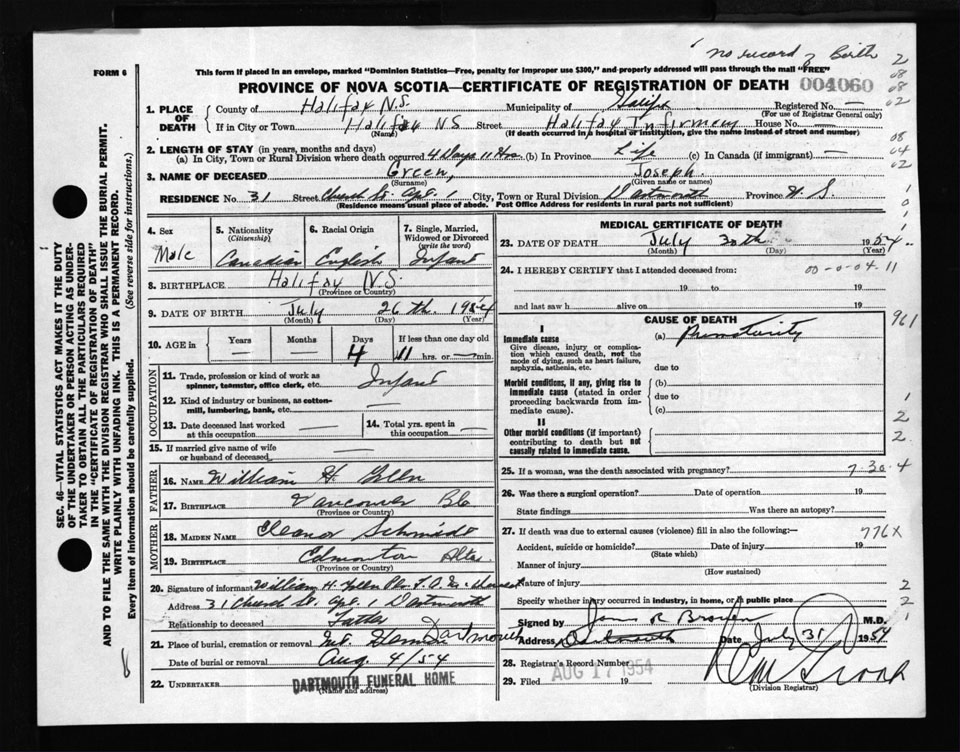 no record of Birth
FORM 6
This form if placed in an envelope, marked "Dominion Statistics—Free, penalty for improper use $300," and properly addressed will pass through the mail "FREE"
PROVINCE OF NOVA SCOTIA—CERTIFICATE OF REGISTRATION OF DEATH 004060
1. PLACE OF DEATH
County of Halifax N.S. Municipality of Halifx Registered No. —
(For use of Registrar General only)
If in City or Town Halifax NS Street Halifax Infirmary House No. —
(Name) (If death occurred in a hospital or institution, give the name instead of street and number)
2. LENGTH OF STAY (in years, months and days)
(a) In City, Town or Rural Division where death occurred 4 Days 11 Hrs. (b) In Province Life (c) In Canada (if immigrant) —
3. NAME OF DECEASED Green, Joseph.
(Surname) (Given name or names)
RESIDENCE NO. 31 Street Church St. Apt. 1 City, Town or Rural Division Dartmouth Province N.S.
(Residence means usual place of abode. Post Office Address for residents in rural parts not sufficient)
4. Sex Male
5. Nationality (Citizenship) Canadian
6. Racial Origin English
7. Single, Married, Widowed or Divorced (write the word) Infant
8. BIRTHPLACE Halifax N.S
(Province or Country)
9. DATE OF BIRTH July 26th. 1954
(Month) (Day) (Year)
10. AGE in Years — Months Days 4 If less than one day old 11 hrs. or — min.
OCCUPATION
11. Trade, profession or kind of work as spinner, teamster, office clerk, etc. Infant
12. Kind of industry or business, as cotton-mill, lumbering, bank, etc. —
13. Date deceased last worked at this occupation —
14. Total yrs. spent in this occupation —
15. If married give name of wife or husband of deceased —
FATHER
16. NAME William H.
17. BIRTHPLACE Vancouver BC
(Province or Country)
MOTHER
18. MAIDEN NAME Eleanor Schmidt
19. BIRTHPLACE Edmonton Alta
(Province or Country)
20. Signature of informant William H.
Address 31 Church St. Apt. 1 Dartmouth
Relationship to deceased Father
21. Place of burial, cremation or removal Mt. Hermon Dartmouth
Date of burial or removal Aug. 4/54
22. UNDERTAKER DARTMOUTH FUNERAL HOME
(Name and address)
MEDICAL CERTIFICATE OF DEATH
23. DATE OF DEATH July 30th 1954
(Month) (Day) (Year)
24. I HEREBY CERTIFY that I attended deceased from: 00-0-04-11
19 to 19
and last saw h alive on 19
CAUSE OF DEATH
I
Immediate cause
Give disease, injury or complication which caused death, not the mode of dying, such as heart failure, asphyxia, asthenia, etc.
(a) Prematurity
due to
Morbid conditions, if any, giving rise to immediate cause (stated in order proceeding backwards from immediate cause).
(b)
due to
(c)
II
Other morbid conditions (if important) contributing to death but not causally related to immediate cause.
25. If a woman, was the death associated with pregnancy? 7-30-4
26. Was there a surgical operation? Date of operation 19
State findings Was there an autopsy?
27. If death was due to external causes (violence) fill in also the following:— 776X
Accident, suicide or homicide? Date of injury 19
(State which)
Manner of injury
(How sustained)
Nature of injury
Specify whether injury occurred in industry, in home, or in public place
Signed by R. M.D.
Address Dartmouth Date July 31 1954
28. Registrar's Record Number
29. Filed AUG 17 1954 19
(Division Registrar)
SEC. 46—VITAL STATISTICS ACT MAKES IT THE DUTY
OF THE UNDERTAKER OR PERSON ACTING AS UNDER-
TAKER TO OBTAIN ALL THE PARTICULARS REQUIRED
IN THE "CERTIFICATE OF REGISTRATION OF DEATH"
AND TO FILE THE SAME WITH THE DIVISION REGISTRAR WHO SHALL ISSUE THE BURIAL PERMIT.
WRITE PLAINLY WITH UNFADING INK. THIS IS A PERMANENT RECORD.
Every item of information should be carefully supplied. (See reverse side for instructions.)
2
08
08
02
08
04
02
1
0
1
961
1
2
2
2
2
1